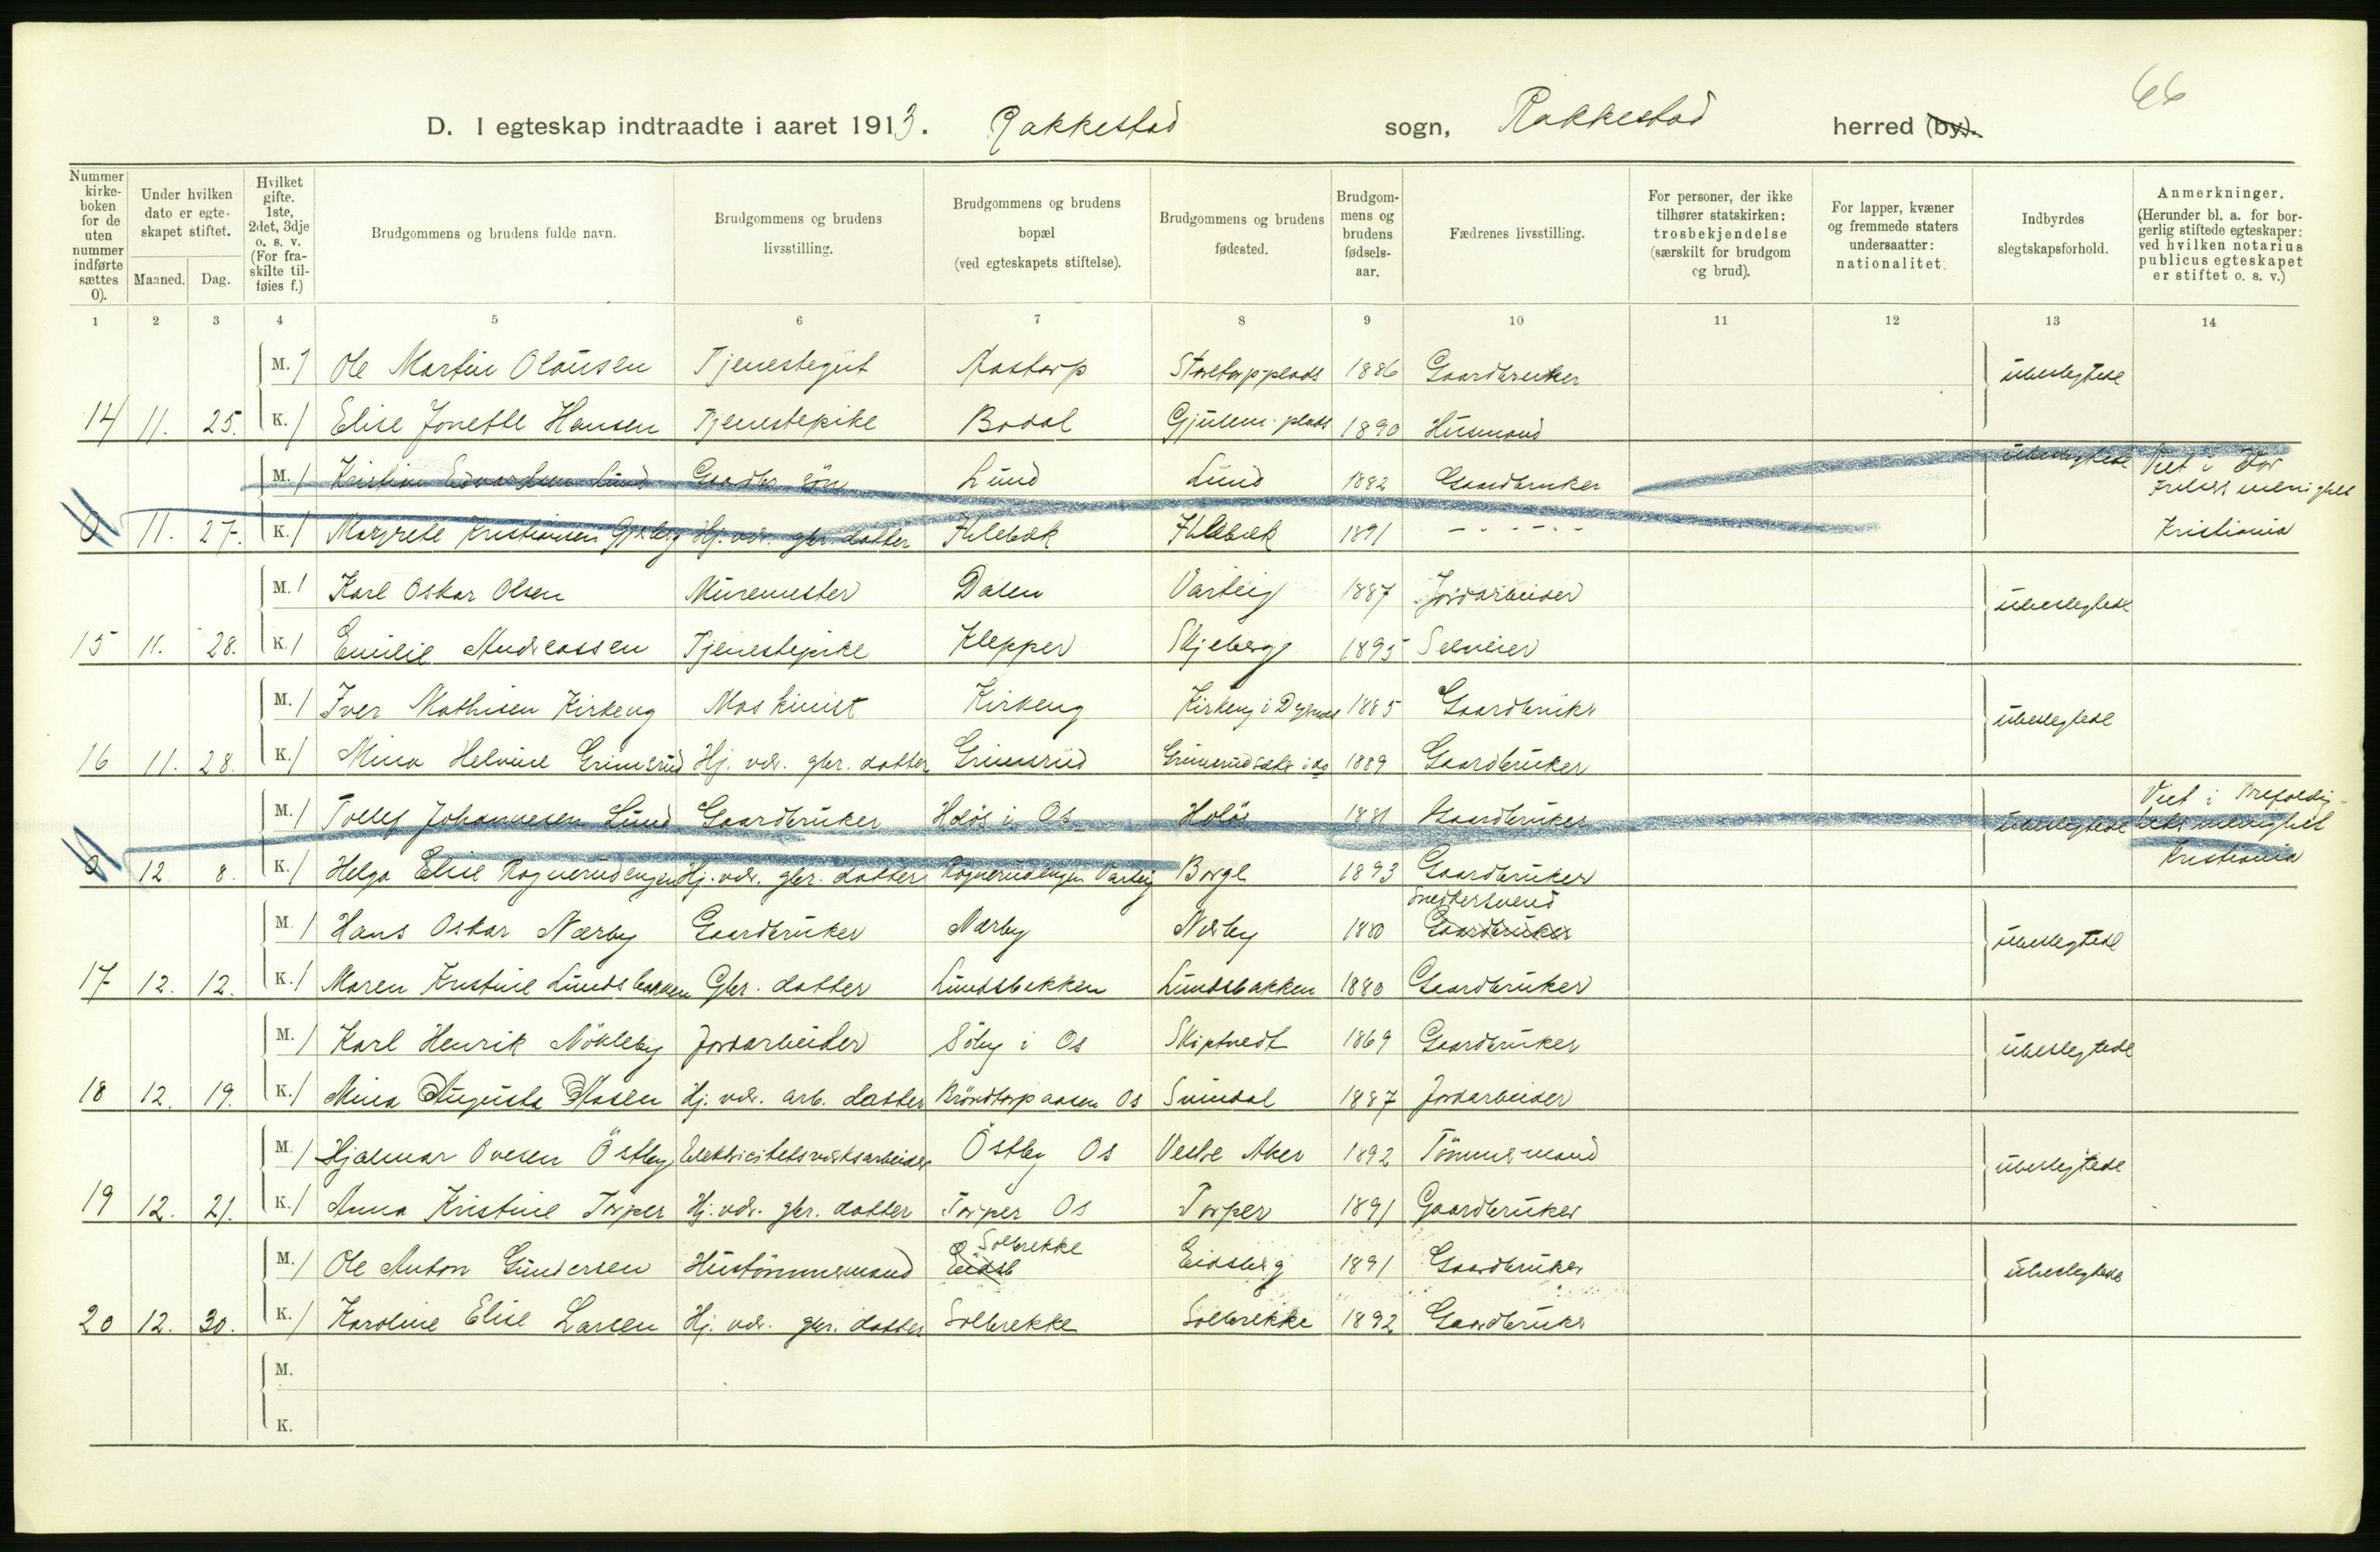 66
D. I egteskap indtraadte i aaret 1913. Rakkestad sogn, Rakkestad herred (by).
Nummer kirkeboken for de uten nummer indførte sættes 0). Under hvilken dato er egteskapet stiftet. Maaned. Dag. Hvilket gifte. 1ste, 2det, 3dje o. s. v. (For fraskilte tilføies f.) Brudgommens og brudens fulde navn. Brudgommens og brudens livsstilling. Brudgommens og brudens bopæl (ved egteskapets stiftelse). Brudgommens og brudens fødested. Brudgommens og brudens fødselsaar. Fædrenes livsstilling. For personer, der ikke tilhører statskirken: trosbekjendelse (særskilt for brudgom og brud). For lapper, kvæner og fremmede staters undersaatter: nationalitet. Indbyrdes slegtskapsforhold. Anmerkninger. (Herunder bl. a. for borgerlig stiftede egteskaper: ved hvilken notarius publicus egteskapet er stiftet o. s. v.)
1 2 3 4 5 6 7 8 9 10 11 12 13 14
M. 1 Ole Martin Olausen Tjenestegut Aastorp Storetorp-plads 1886 Gaardbruker ubeslegtede
14 11. 25. K. 1 Elise Jonette Hansen Tjenestepike Bodal Gjulem-plads 1890 Husmand
M. 1 Kristian Edvardsen Lund Gaardbr. søn Lund Lund 1882 Gaardbruker ubeslegtede Viet i Vor Frelsers menighet
0 11. 27. K. 1 Margrete Kristiansen Hj. vær. gbr. datter Ihlebæk Ihlebæk 1891 - - - - - - Kristiania
M. 1 Karl Oskar Olsen Muremester Dalen Varteig 1887 Jordarbeider ubeslegtede
15 11. 28. K. 1 Emilie Andreassen Tjenestepike Klepper Skjeberg 1895 Selveier
M. 1 Iver Mathisen Kirkeng Maskinist Kirkeng Kirkeng i Degernes 1885 Gaardbruker ubeslegtede
16 11. 28. K. 1 Mina Helvine Grimsrud Hj. vær. gbr. datter Grimsrud Grimsrudsæter i do 1889 Gaardbruker
M. 1 Tollef Johannesen Lund Gaardbruker Holøs i Os Holøs 1881 Gaardbruker ubeslegtede Viet i Trefoldighets menighet
0 12 8. K. 1 Helga Elise Rognerudengen Hj. vær. gbr. datter Rognerudengen Varteig Borge 1893 Gaardbruker Kristiania
Snedkersvend
M. 1 Hans Oskar Nærby Gaardbruker Nærby Nærby 1880 Gaardbruker ubeslegtede
17 12. 12. K. 1 Maren Kristine Lundsbakken Gbr. datter Lundsbakken Lundsbakken 1880 Gaardbruker
M. 1 Karl Henrik Nökleby Jordarbeider Söby i Os Skiptvedt 1869 Gaardbruker ubeslegtede
18 12. 19. K. 1 Mina Augusta Aasen Hj. vær. arb. datter Bröndtorpaasen Os Svindal 1887 Jordarbeider
M. 1 Hjalmar Ovesen Östby Elektricitetsverksarbeider Östby Os Vestre Aker 1892 Tömmermand ubeslegtede
19 12. 21. K. 1 Anna Kristine Torper Hj. vær. gbr. datter Torper Os Torper 1891 Gaardbruker
Solbrekke
M. 1 Ole Anton Gundersen Hustömmermand Eidsb Eidsberg 1891 Gaardbruker ubeslegtede
20 12. 30. K. 1 Karoline Elise Larsen Hj. vær. gbr. datter Solbrekke Solbrekke 1892 Gaardbruker
M.
K.